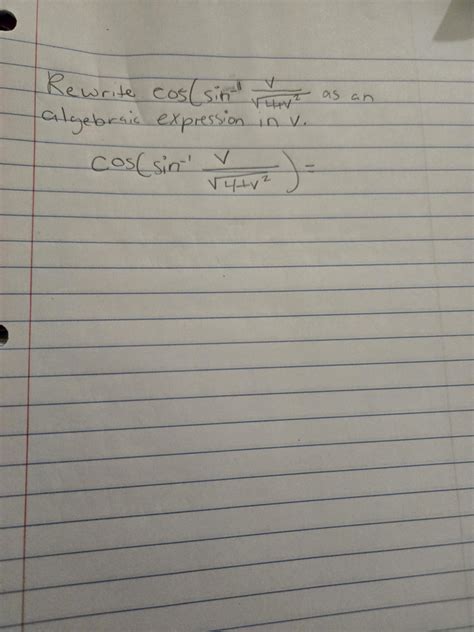 Rewrite cos(sin⁻¹ v/√4+v² as an
algebraic expression in v.
cos(sin⁻¹ v/√4+v²) =